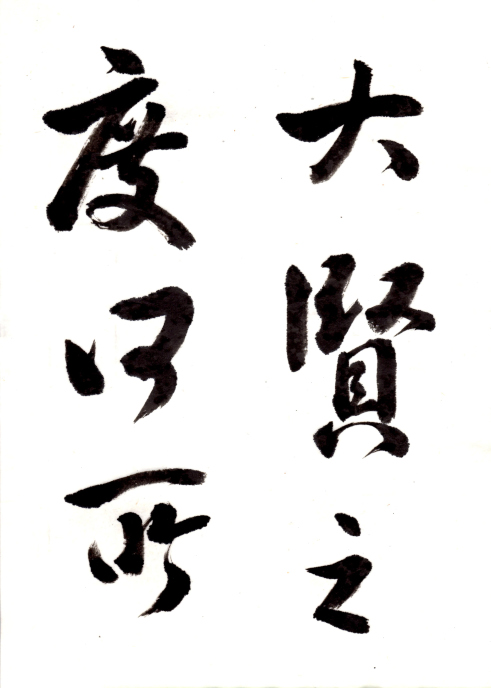 大賢之
度所